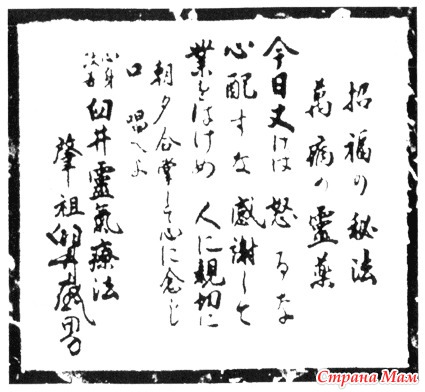 招福の秘法
萬病の靈薬
今日丈けは 怒るな
心配すな 感謝して
業をはけめ 人に親切に
朝夕合掌して心に念じ
口 唱へよ
心身改善 臼井靈氣療法
肇祖 臼井甕男
Страна Мам